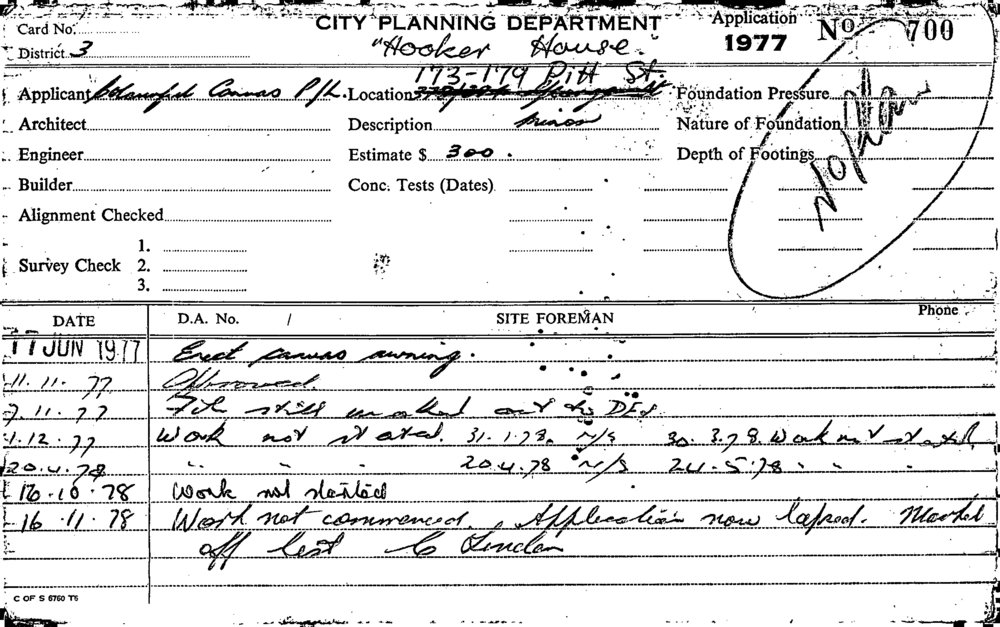 Card No. CITY PLANNING DEPARTMENT Application Nº 700
District 3 "Hooker House" 1977
173-179 Pitt St.
Applicant Colourful Canvas P/L. Location Foundation Pressure
Architect Description minor Nature of Foundation
Engineer Estimate $ 300. Depth of Footings
Builder Conc. Tests (Dates)
Alignment Checked
1.
Survey Check 2.
3.
DATE D.A. No. / SITE FOREMAN Phone
17 JUN 1977 Erect canvas awning.
11.11.77 Approved.
7.11.77 File still marked out to DES
1.12.77 Work not started. 31.1.78. N/S 30.3.78. Work not started
20.4.78 " " " 20.4.78 N/S 24.5.78 " " "
16.10.78 Work not started
16.11.78 Work not commenced. Application now lapsed. Marked
off list
C OF S 6760 T6